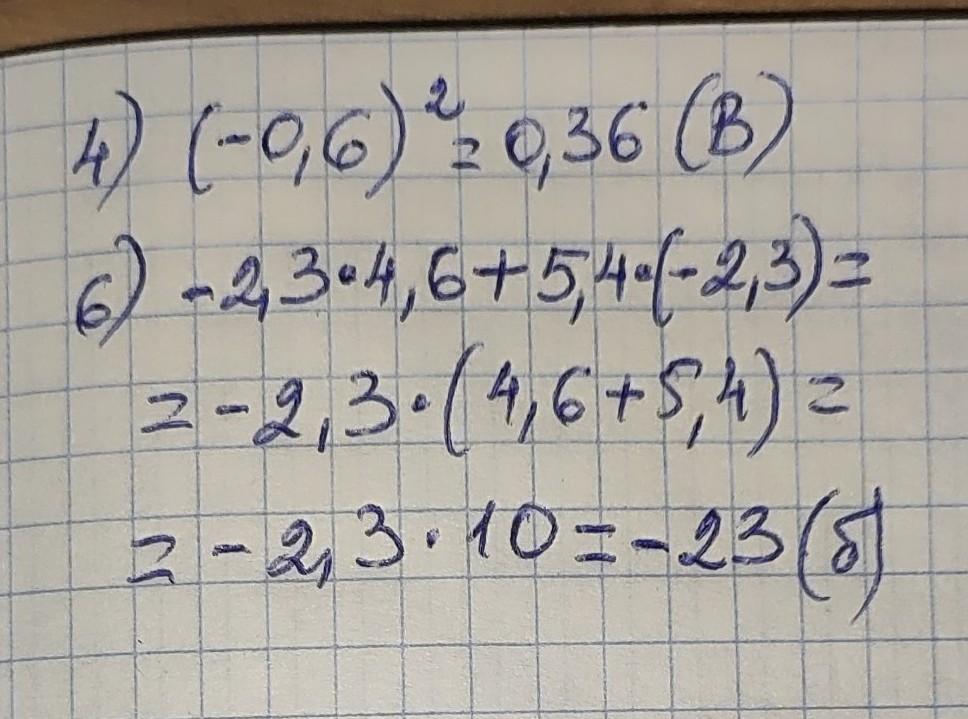 4) (-0,6)² = 0,36 (В)
6) -2,3·4,6+5,4·(-2,3)=
= -2,3·(4,6+5,4)=
= -2,3·10=-23 (б)